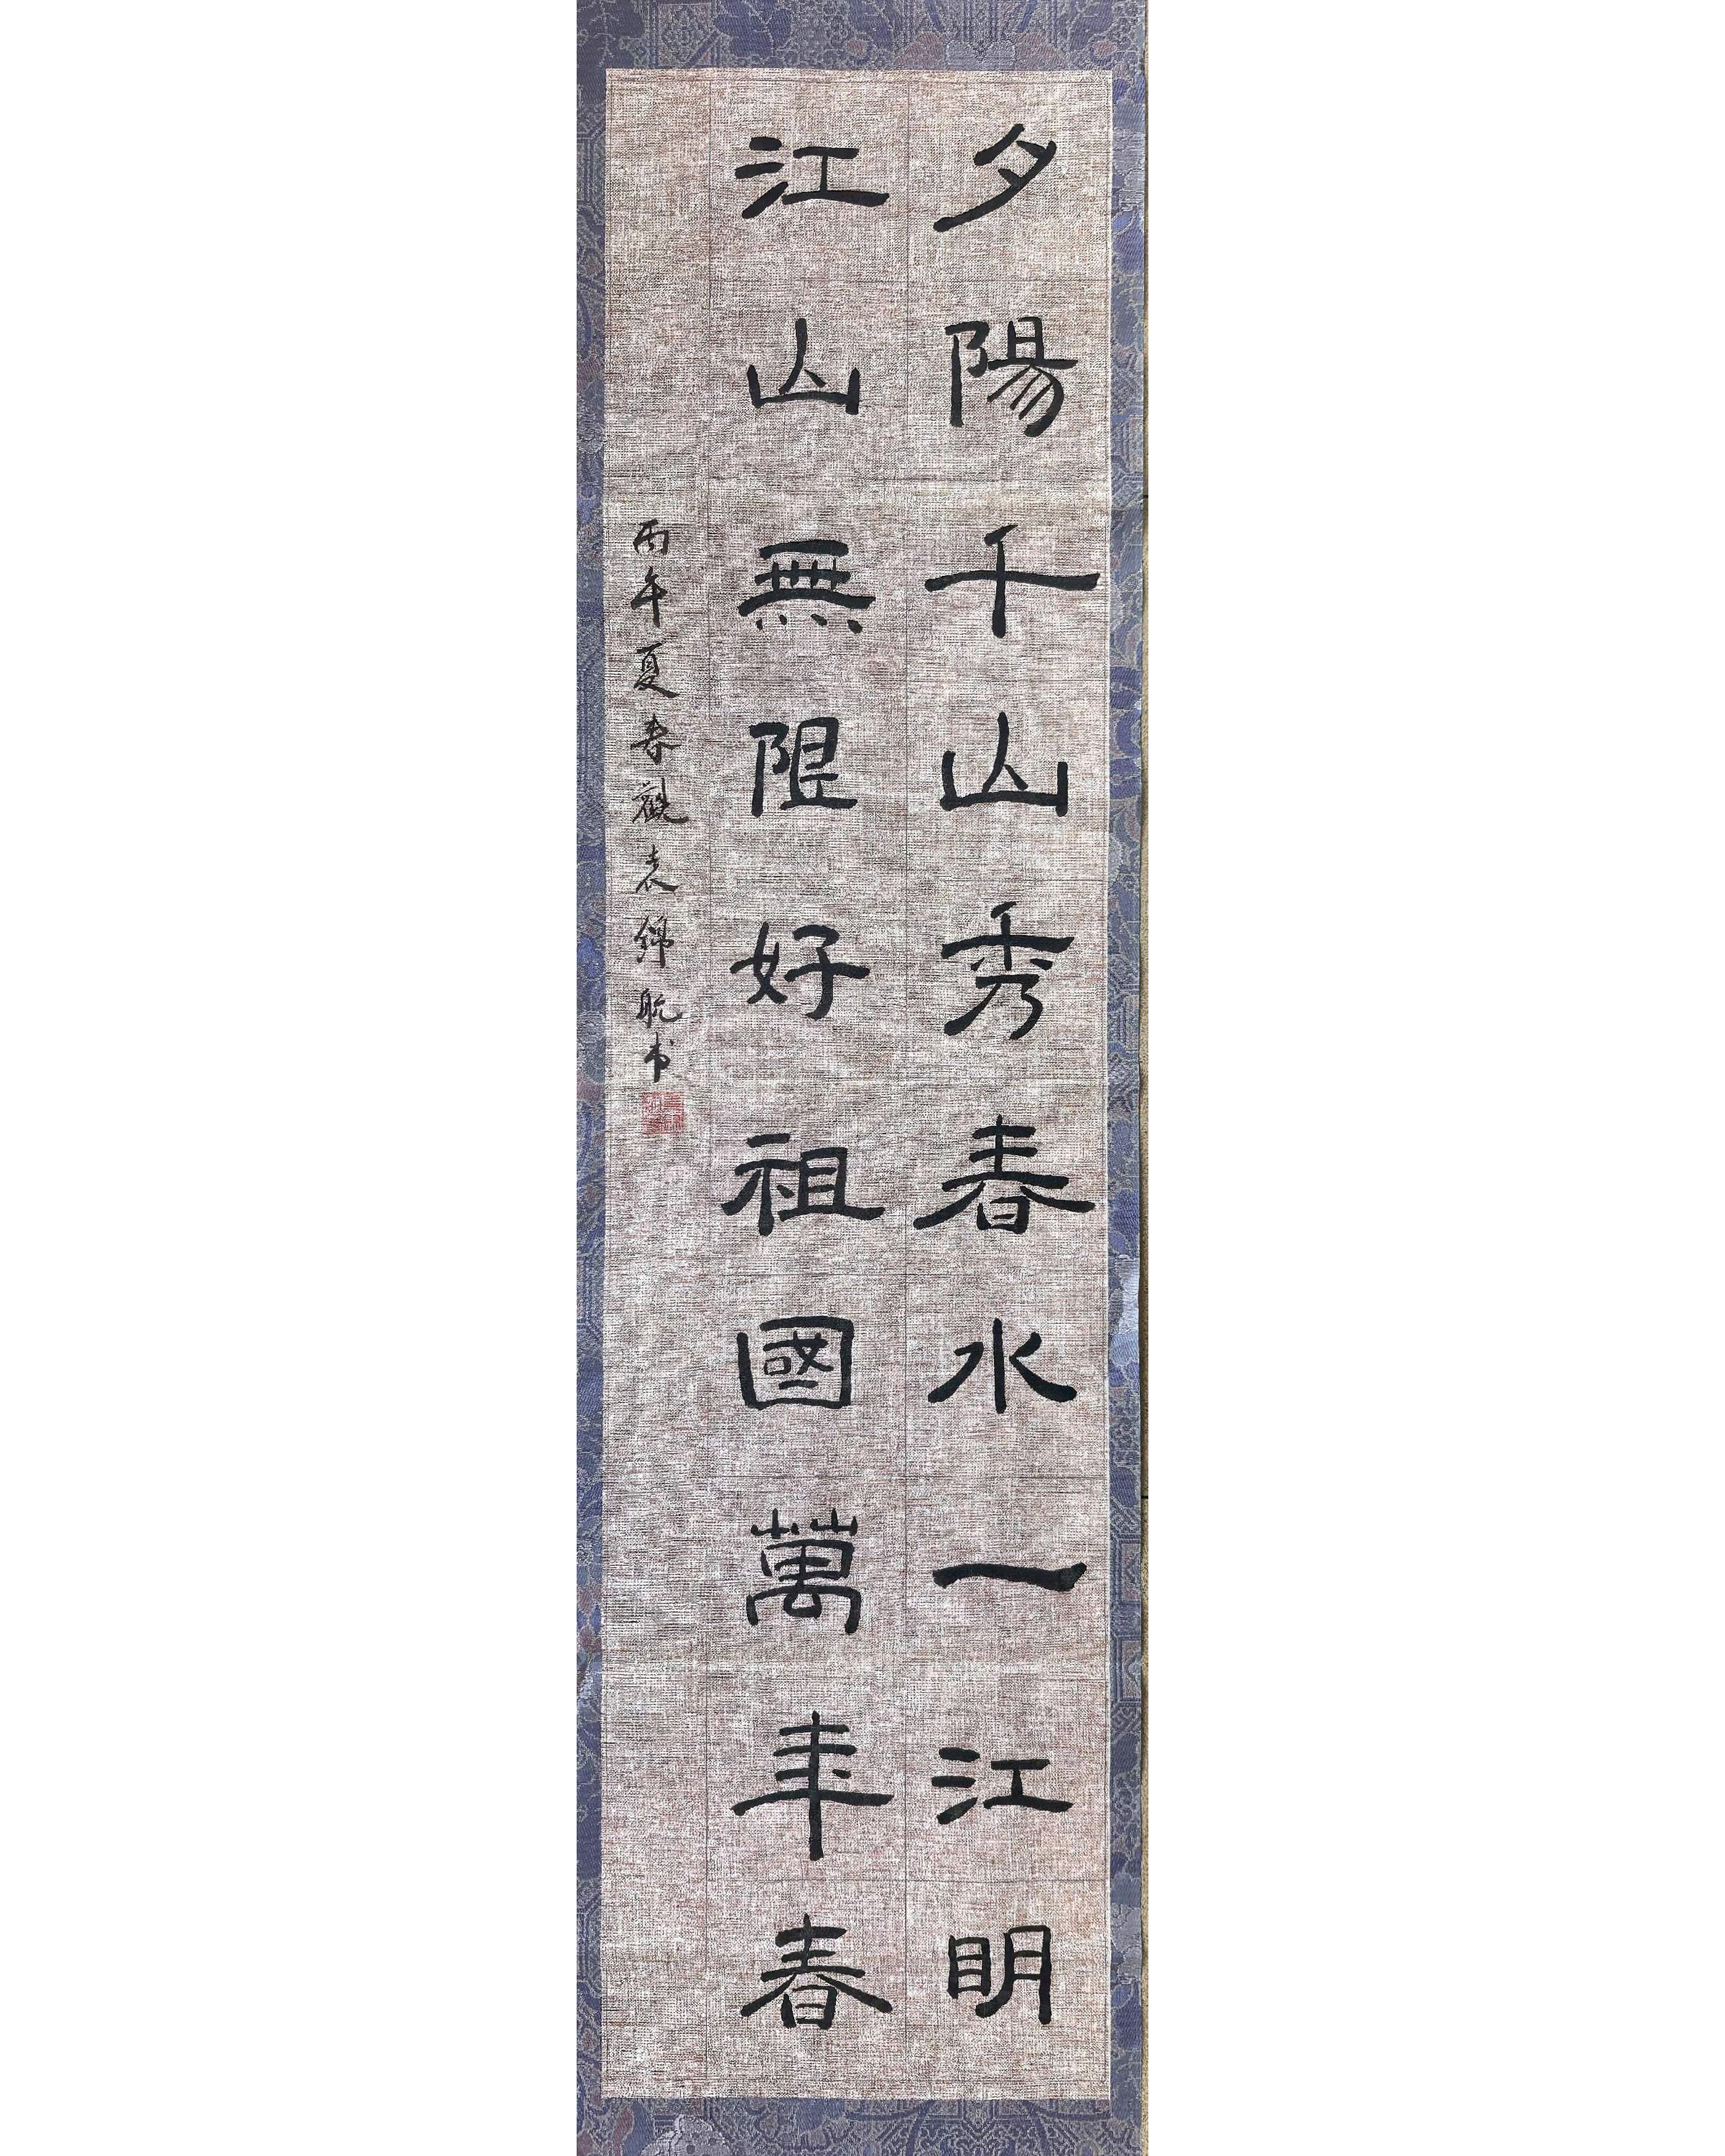 夕陽千山秀春水一江明
江山無限好祖國萬年春
丙午夏春觀袁錦航书